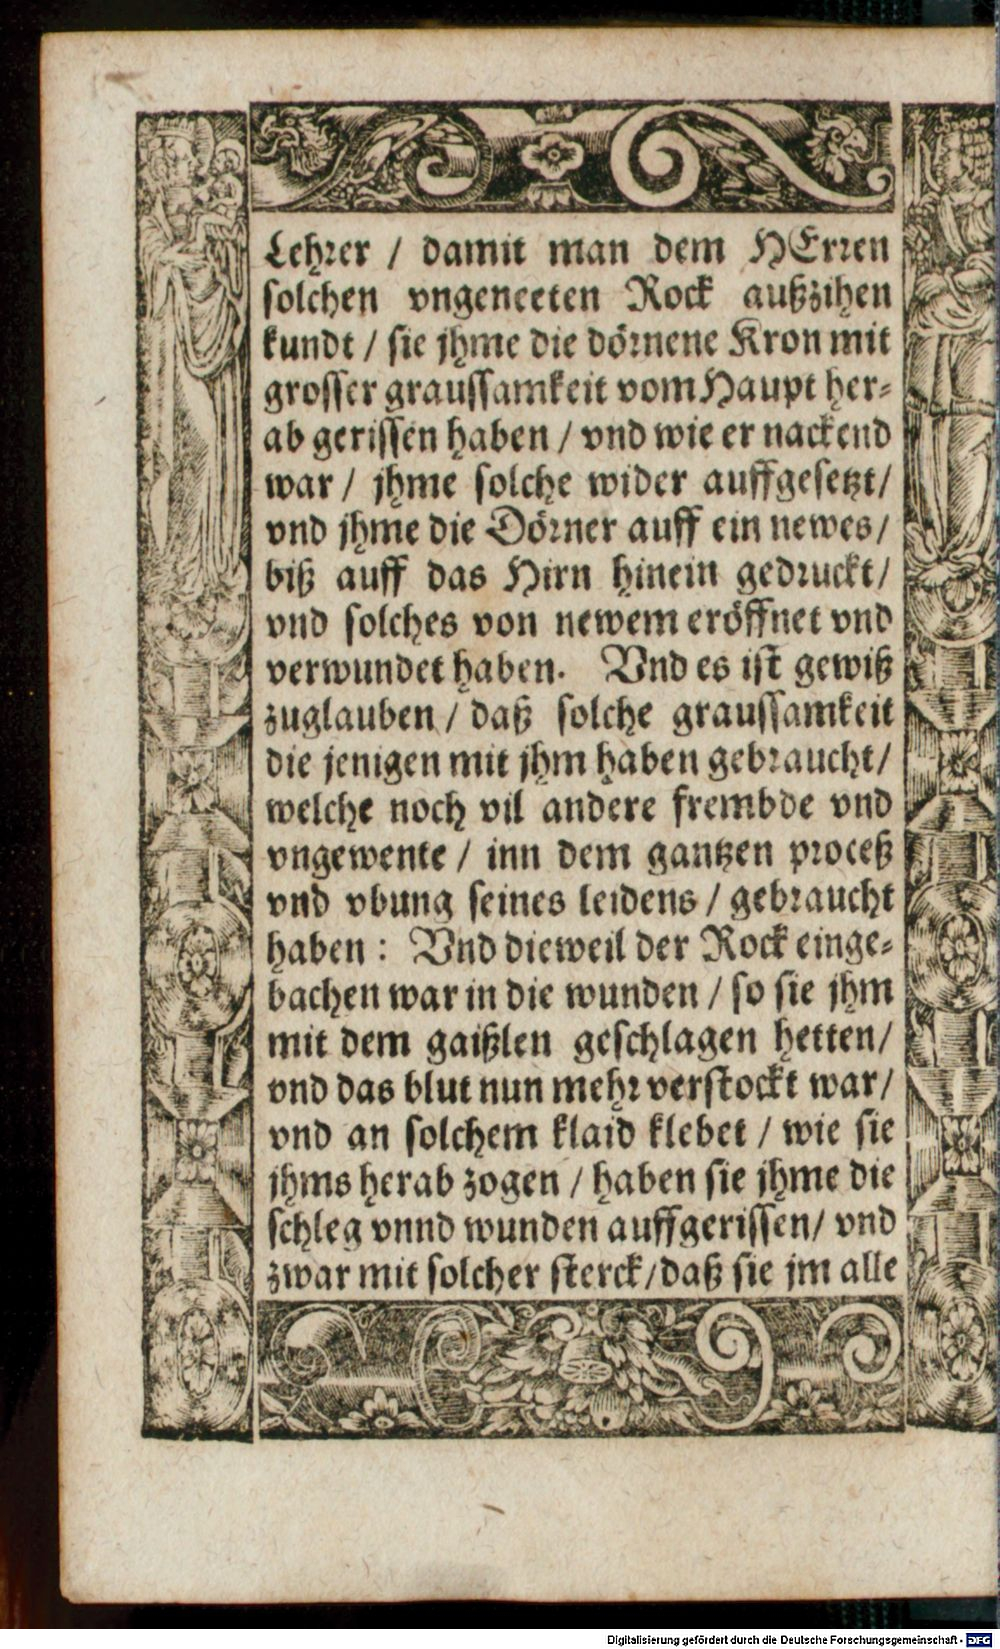 Lehrer / damit man dem HErren
solchen vngeneeten Rock außzihen
kundt / sie jhme die dörnene Kron mit
grosser graussamkeit vom Haupt her-
ab gerissen haben / vnd wie er nackend
war / jhme solche wider auffgesetzt/
vnd jhme die Dörner auff ein newes/
biß auff das Hirn hinein gedruckt/
vnd solches von newem eröffnet vnd
verwundet haben. Vnd es ist gewiß
zuglauben / daß solche graussamkeit
die jenigen mit jhm haben gebraucht/
welche noch vil andere frembde vnd
vngewente / inn dem gantzen proceß
vnd vbung seines leidens / gebraucht
haben : Vnd dieweil der Rock einge-
bachen war in die wunden / so sie jhm
mit dem gaißlen geschlagen hetten/
vnd das blut nun mehr verstockt war/
vnd an solchem klaid klebet / wie sie
jhms herab zogen / haben sie jhme die
schleg vnnd wunden auffgerissen/ vnd
zwar mit solcher sterck/daß sie jm alle
Digitalisierung gefördert durch die Deutsche Forschungsgemeinschaft - DFG